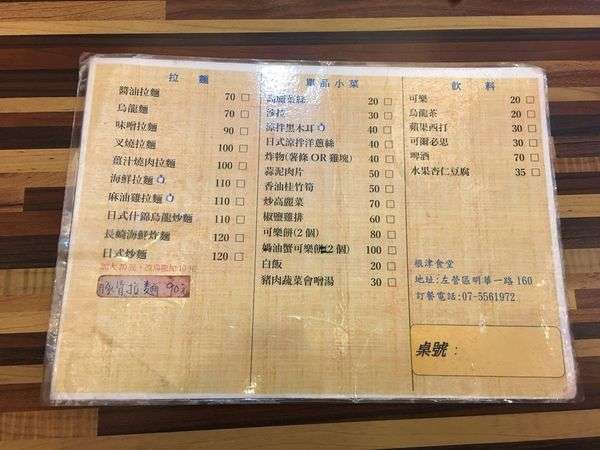 拉麵
醬油拉麵 70 □
烏龍麵 70 □
味噌拉麵 90 □
叉燒拉麵 100 □
薑汁燒肉拉麵 100 □
海鮮拉麵 110 □
麻油雞拉麵 110 □
日式什錦烏龍炒麵 110 □
長崎海鮮炸麵 120 □
日式炒麵 120 □
豚骨拉麵 90元
單品小菜
高麗菜絲 20 □
沙拉 30 □
涼拌黑木耳 40 □
日式涼拌洋蔥絲 40 □
炸物(薯條 OR 雞塊) 40 □
蒜泥肉片 50 □
香油桂竹筍 50 □
炒高麗菜 70 □
椒鹽雞排 60 □
可樂餅(2 個) 80 □
奶油蟹可樂餅(2 個) 100 □
白飯 20 □
豬肉蔬菜會噌湯 30 □
飲料
可樂 20 □
烏龍茶 20 □
蘋果西打 30 □
可爾必思 30 □
啤酒 70 □
水果杏仁豆腐 35 □
根津食堂
地址:左營區明華一路 160
訂餐電話:07-5561972
桌號: